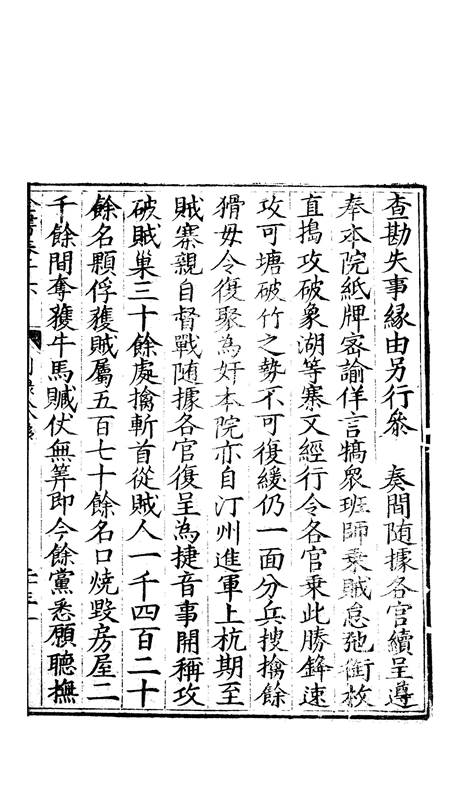 查勘失事緣由另行參　奏間隨據各官續呈遵
奉本院紙牌密諭佯言犒衆班師乘賊怠弛銜枚
直搗攻破象湖等寨又經行令各官乘此勝鋒速
攻可塘破竹之勢不可復緩仍一面分兵搜擒餘
猾毋令復聚為奸本院亦自汀州進軍上杭期至
賊寨親自督戰隨據各官復呈為捷音事開稱攻
破賊巢三十餘處擒斬首從賊人一千四百二十
餘名顆俘獲賊屬五百七十餘名口燒毀房屋二
千餘間奪獲牛馬贓仗無筭即今餘黨悉願聽撫